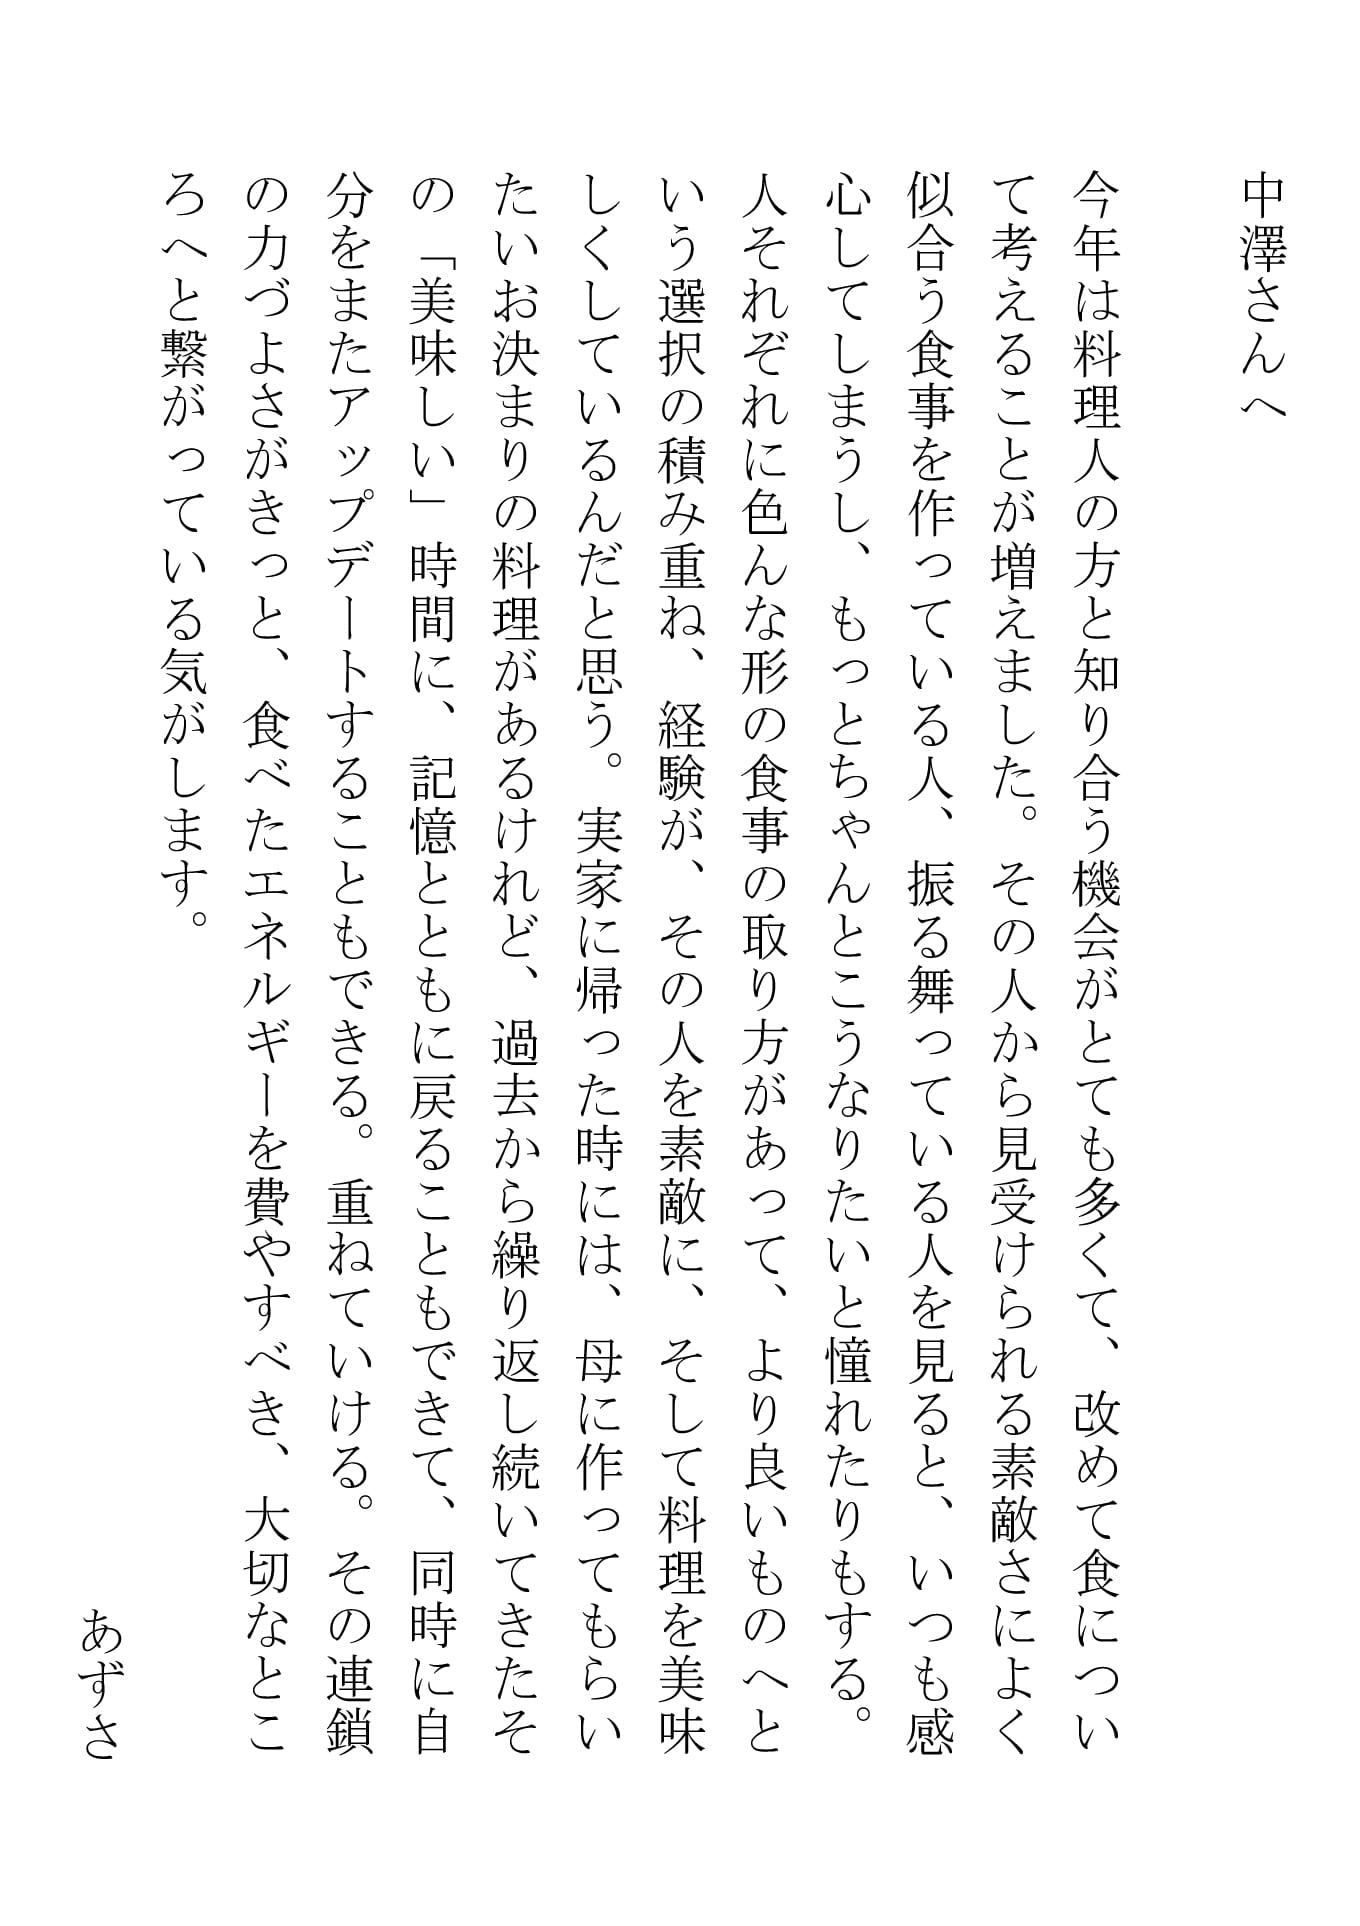 中澤さんへ
今年は料理人の方と知り合う機会がとても多くて、改めて食につい
て考えることが増えました。その人から見受けられる素敵さによく
似合う食事を作っている人、振る舞っている人を見ると、いつも感
心してしまうし、もっとちゃんとこうなりたいと憧れたりもする。
人それぞれに色んな形の食事の取り方があって、より良いものへと
いう選択の積み重ね、経験が、その人を素敵に、そして料理を美味
しくしているんだと思う。実家に帰った時には、母に作ってもらい
たいお決まりの料理があるけれど、過去から繰り返し続いてきたそ
の「美味しい」時間に、記憶とともに戻ることもできて、同時に自
分をまたアップデートすることもできる。重ねていける。その連鎖
の力づよさがきっと、食べたエネルギーを費やすべき、大切なとこ
ろへと繋がっている気がします。
あずさ